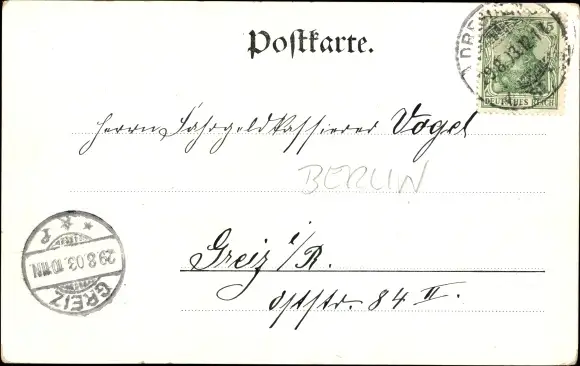 Postkarte.
5
DEUTSCHES REICH
29.8.03.10-11
Herrn Fahrgeldkassierer Vogel
BERLIN
Greiz i/R.
Oststr. 84 II.
GREIZ
29.8.03.10-11N.
* 2